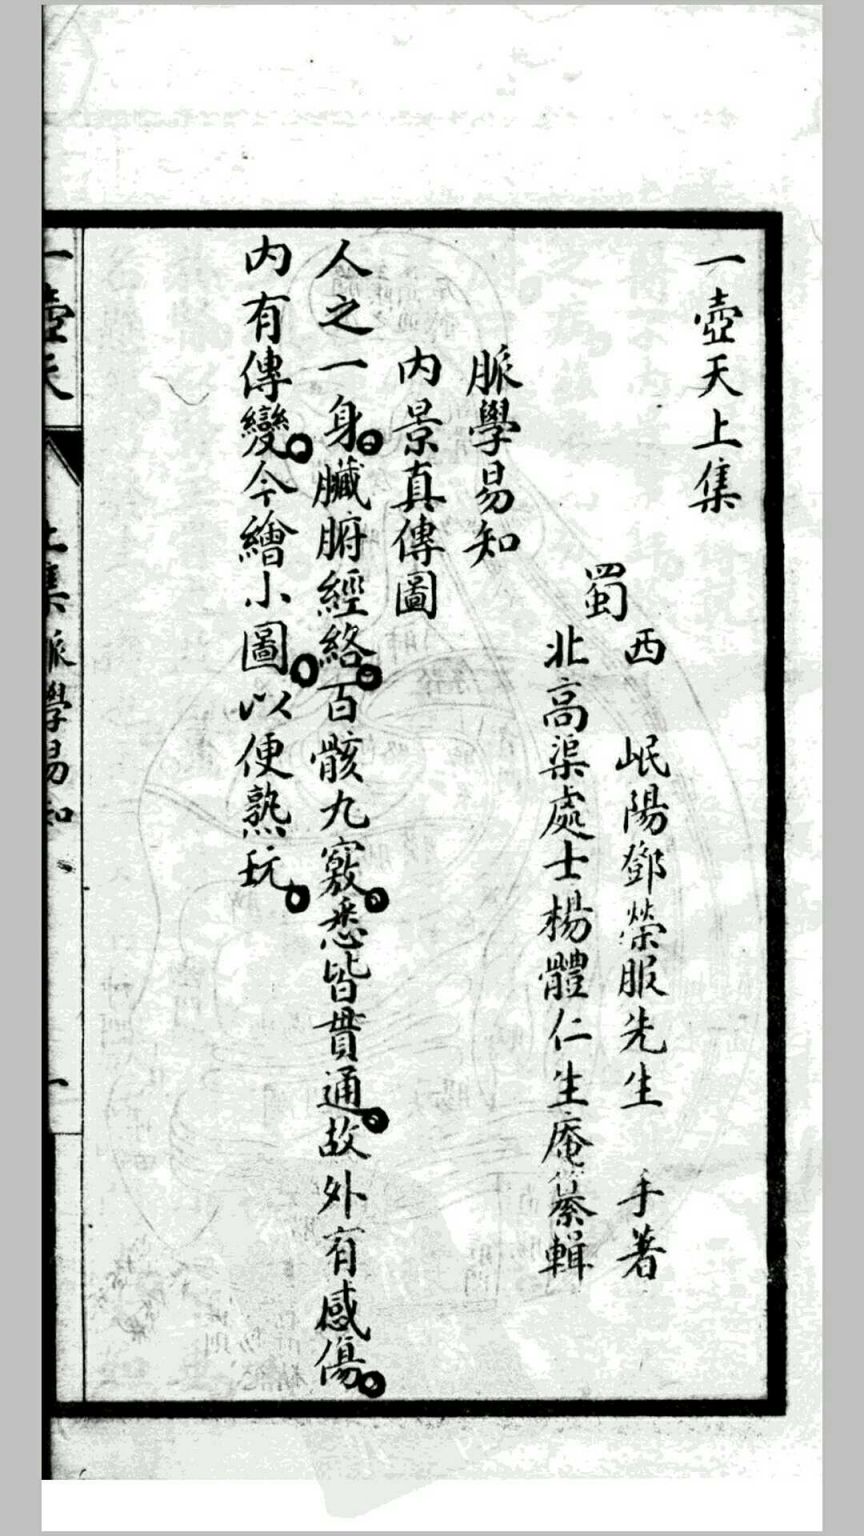 一壺天上集
蜀
西　岷陽鄧榮服先生　手著
北高渠處士楊體仁生庵纂輯
脈學易知
內景真傳圖
人之一身。臟腑經絡。百骸九竅。悉皆貫通。故外有感傷。
內有傳變。今繪小圖。以便熟玩。
一壺天　上集　脈學易知　一